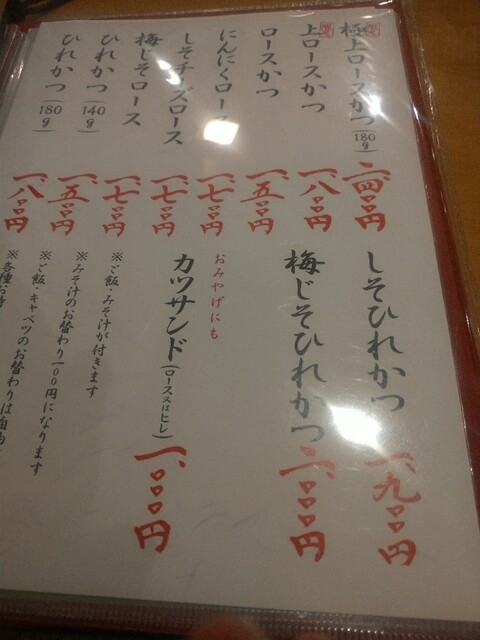 極上ロースかつ(180g) 二、四〇〇円
上ロースかつ 一、八〇〇円
ロースかつ 一、五〇〇円
にんにくロース 一、七〇〇円
しそチーズロース 一、七〇〇円
梅じそロース 一、七〇〇円
ひれかつ(140g) 一、五〇〇円
ひれかつ(180g) 一、八〇〇円
しそひれかつ 一、九〇〇円
梅じそひれかつ 二、〇〇〇円
おみやげにも
カツサンド(ロース又はヒレ) 一、〇〇〇円
※ご飯・みそ汁が付きます
※みそ汁のお替わり一〇〇円になります
※ご飯・キャベツのお替わりは自由